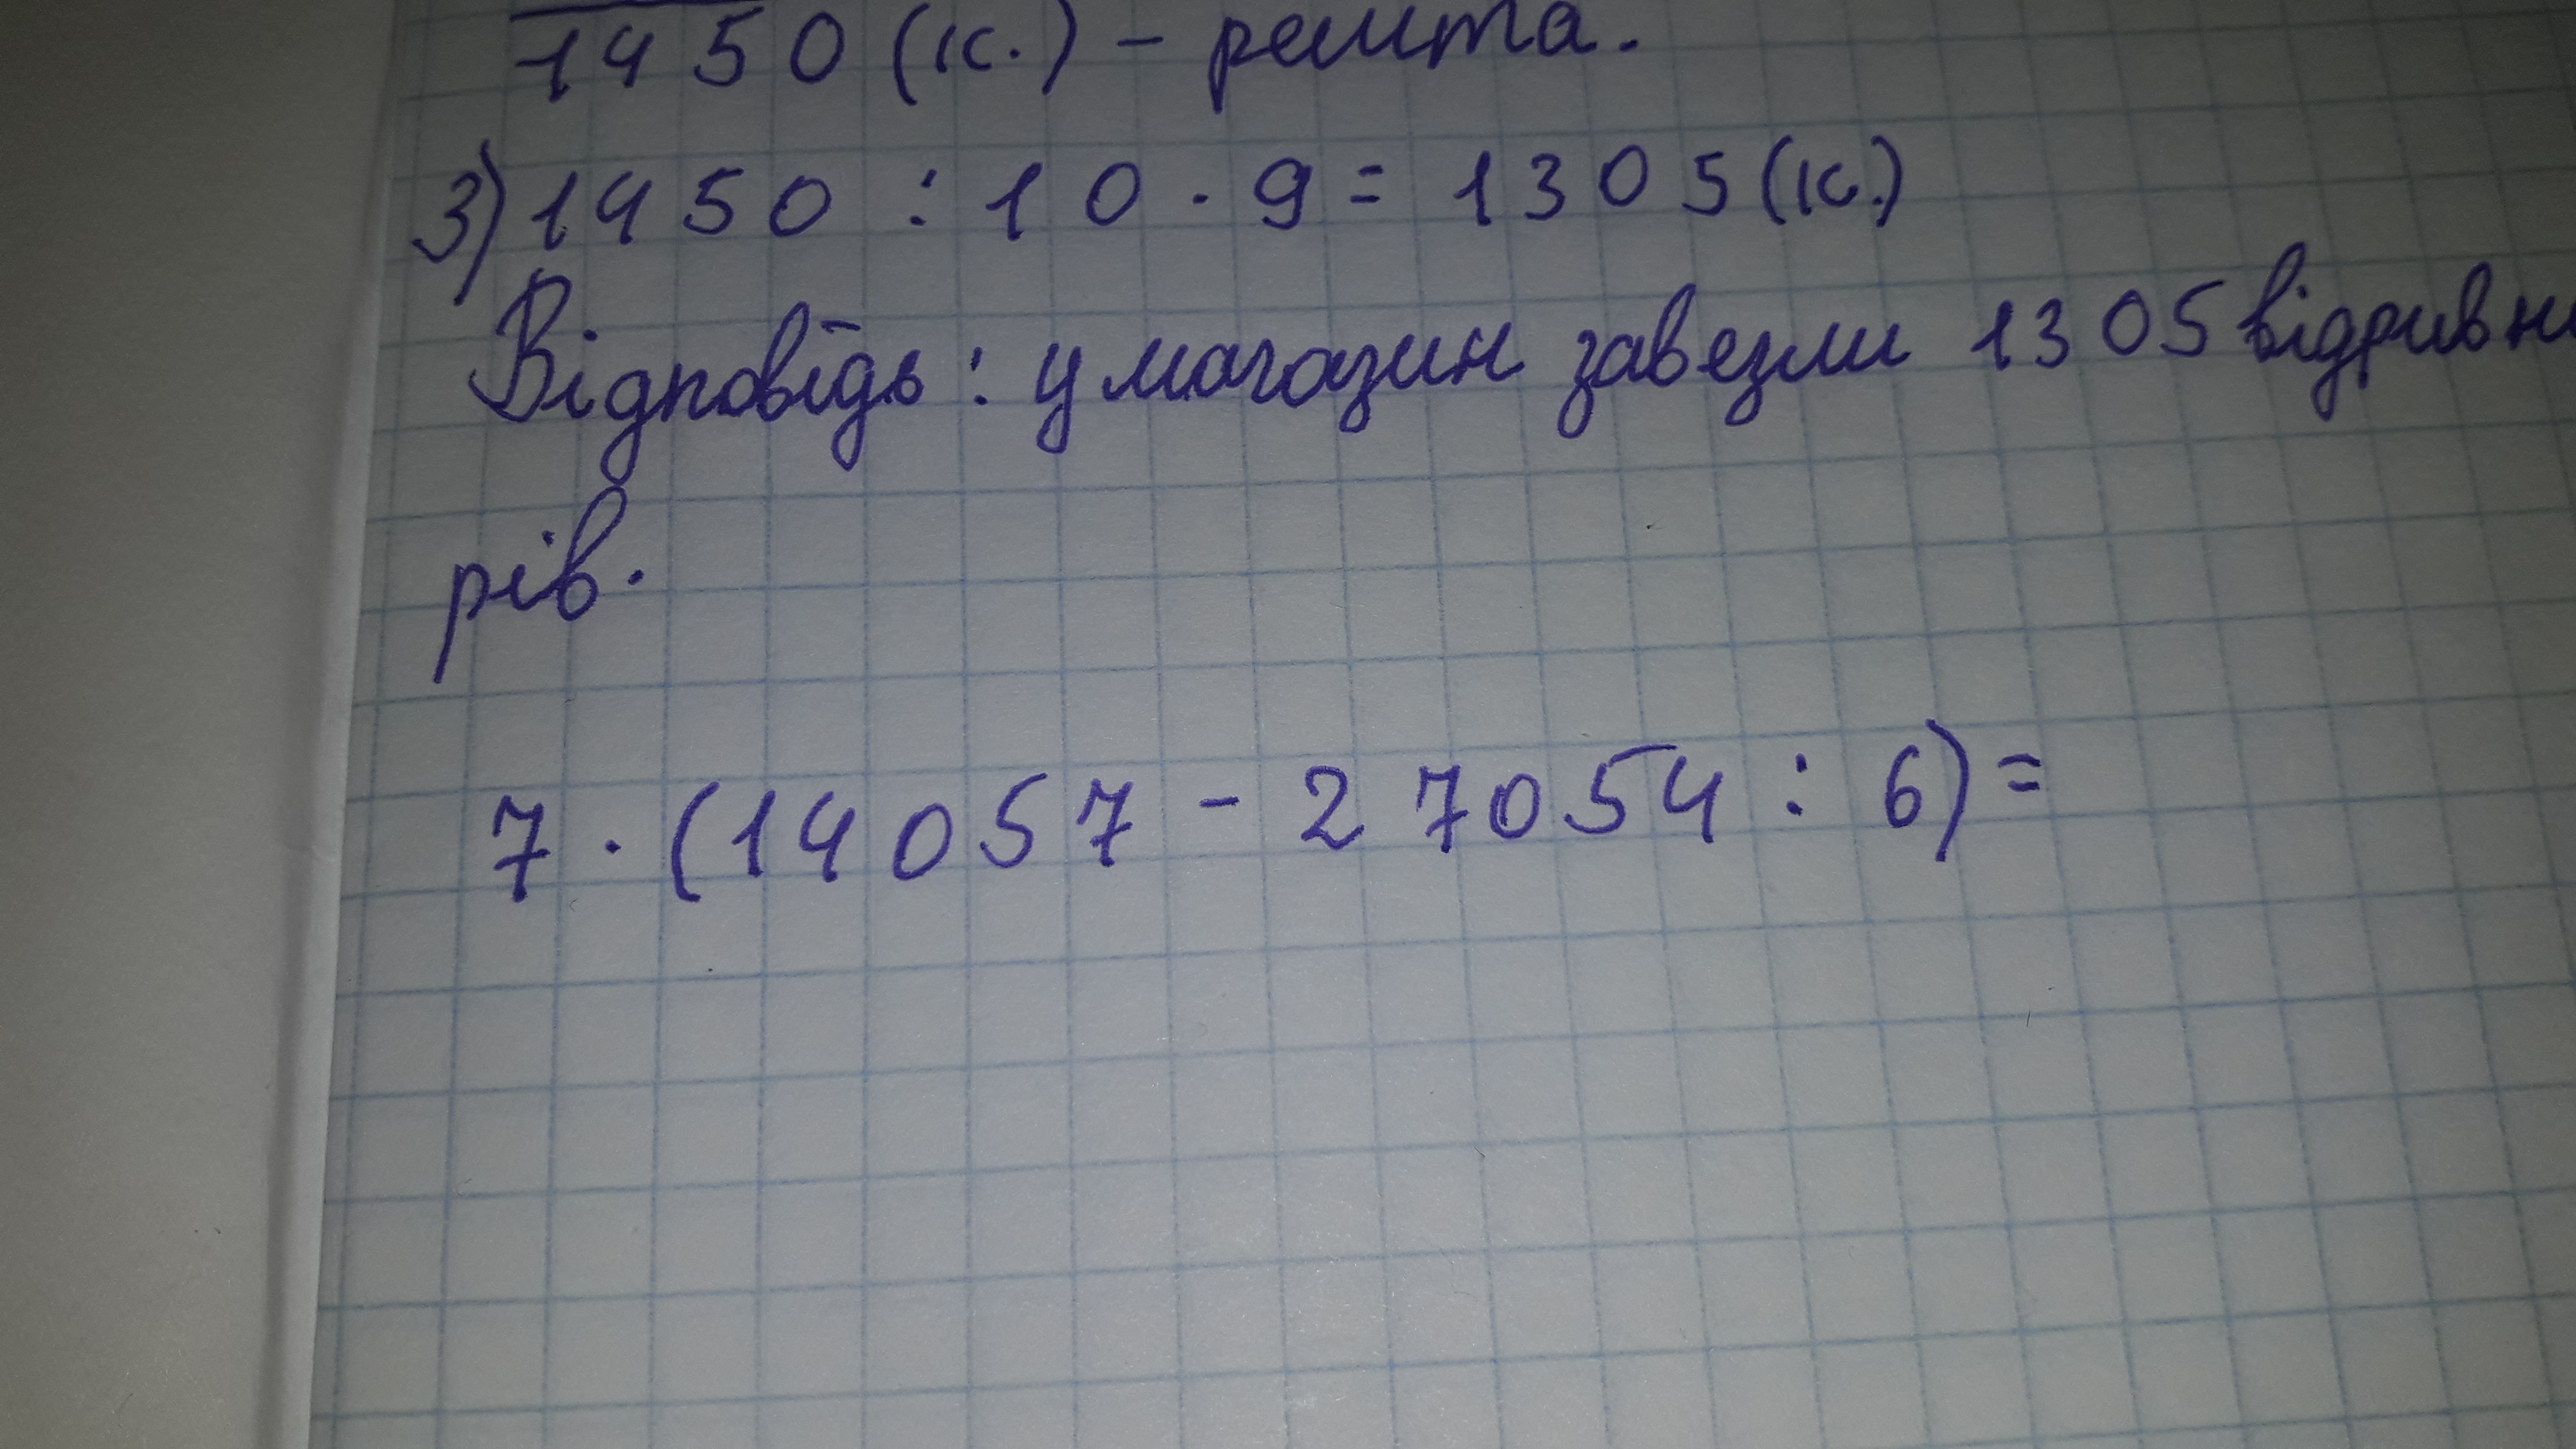 1450 (к.) - решта.
3) 1450 : 10 · 9 = 1305 (к.)
Відповідь: у магазин завезли 1305 відривн
рів.
7 · (14057 - 27054 : 6) =